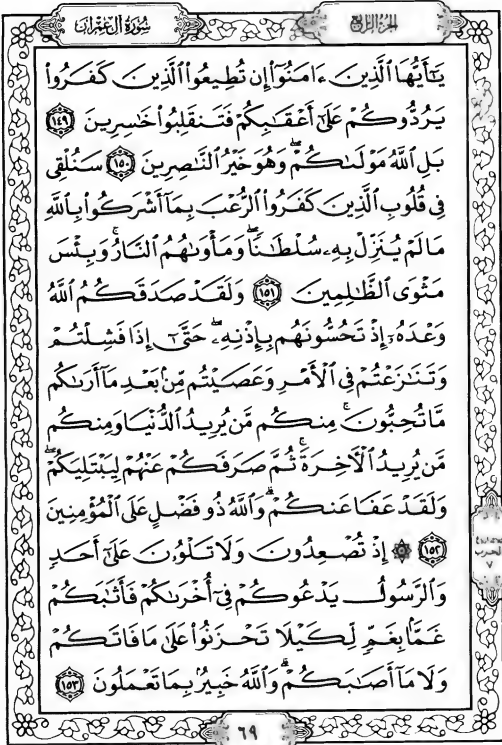 الجزء الرابع
سورة آل عمران
يَـٰٓأَيُّهَا ٱلَّذِينَ ءَامَنُوٓا۟ إِن تُطِيعُوا۟ ٱلَّذِينَ كَفَرُوا۟
يَرُدُّوكُمْ عَلَىٰٓ أَعْقَـٰبِكُمْ فَتَنقَلِبُوا۟ خَـٰسِرِينَ ١٤٩
بَلِ ٱللَّهُ مَوْلَىٰكُمْ ۖ وَهُوَ خَيْرُ ٱلنَّـٰصِرِينَ ١٥٠ سَنُلْقِى
فِى قُلُوبِ ٱلَّذِينَ كَفَرُوا۟ ٱلرُّعْبَ بِمَآ أَشْرَكُوا۟ بِٱللَّهِ
مَا لَمْ يُنَزِّلْ بِهِۦ سُلْطَـٰنًا ۖ وَمَأْوَىٰهُمُ ٱلنَّارُ ۚ وَبِئْسَ
مَثْوَى ٱلظَّـٰلِمِينَ ١٥١ وَلَقَدْ صَدَقَكُمُ ٱللَّهُ
وَعْدَهُۥٓ إِذْ تَحُسُّونَهُم بِإِذْنِهِۦ ۖ حَتَّىٰٓ إِذَا فَشِلْتُمْ
وَتَنَـٰزَعْتُمْ فِى ٱلْأَمْرِ وَعَصَيْتُم مِّنۢ بَعْدِ مَآ أَرَىٰكُم
مَّا تُحِبُّونَ ۚ مِنكُم مَّن يُرِيدُ ٱلدُّنْيَا وَمِنكُم
مَّن يُرِيدُ ٱلْـَٔاخِرَةَ ۚ ثُمَّ صَرَفَكُمْ عَنْهُمْ لِيَبْتَلِيَكُمْ ۖ
وَلَقَدْ عَفَا عَنكُمْ ۗ وَٱللَّهُ ذُو فَضْلٍ عَلَى ٱلْمُؤْمِنِينَ
١٥٢ ۞ إِذْ تُصْعِدُونَ وَلَا تَلْوُۥنَ عَلَىٰٓ أَحَدٍ
وَٱلرَّسُولُ يَدْعُوكُمْ فِىٓ أُخْرَىٰكُمْ فَأَثَـٰبَكُمْ
غَمًّۢا بِغَمٍّ لِّكَيْلَا تَحْزَنُوا۟ عَلَىٰ مَا فَاتَكُمْ
وَلَا مَآ أَصَـٰبَكُمْ ۗ وَٱللَّهُ خَبِيرٌۢ بِمَا تَعْمَلُونَ ١٥٣
الحزب
٧
٦٩